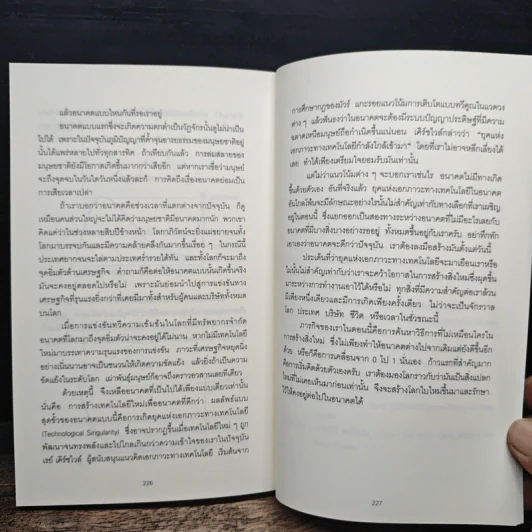 แล้วอนาคตแบบไหนกันที่รอเราอยู่
อนาคตแบบแรกซึ่งจะเกิดความตกต่ำเป็นวัฏจักรนั้นดูไม่น่าเป็น
ไปได้ เพราะในปัจจุบันภูมิปัญญาที่ค้ำจุนอารยธรรมของมนุษยชาติอยู่
นั้นได้แพร่หลายไปทั่วทุกสารทิศ ถ้าเทียบกันแล้ว การล่มสลายของ
มนุษยชาติยังมีโอกาสเกิดขึ้นมากกว่าเสียอีก แต่หากเราเชื่อว่ามนุษย์
จะถึงจุดจบในวันใดวันหนึ่งแล้วละก็ การคิดถึงเรื่องอนาคตย่อมเป็นการ
เสียเวลาเปล่า
ถ้าเราบอกว่าอนาคตคือช่วงเวลาที่แตกต่างจากปัจจุบัน ก็ดู
เหมือนคนส่วนใหญ่จะไม่ได้คิดว่ามนุษย์เรามีอนาคตมากนัก พวกเขา
คิดแค่ว่าในช่วงหลายสิบปีข้างหน้า โลกาภิวัตน์จะยิ่งแผ่ขยายจนทั้ง
โลกมาบรรจบกันและมีความคล้ายคลึงกันมากขึ้นเรื่อย ๆ ในกรณีนี้
ประเทศยากจนจะไล่ตามประเทศร่ำรวยได้ทัน และทั้งโลกก็จะมาถึง
จุดอิ่มตัวด้านเศรษฐกิจ คำถามก็คือต่อให้อนาคตแบบนั้นเกิดขึ้นจริง
มันจะคงอยู่ตลอดไปหรือไม่ เพราะมันย่อมนำไปสู่การแข่งขันทาง
เศรษฐกิจที่รุนแรงยิ่งกว่าที่เคยมีมาทั้งสำหรับผู้คนและบริษัททั้งหมด
บนโลก
เมื่อการแข่งขันทวีความเข้มข้นในโลกที่มีทรัพยากรจำกัด
อนาคตที่โลกมาถึงจุดอิ่มตัวจะคงอยู่ได้ไม่นาน หากไม่มีเทคโนโลยี
ใหม่มาบรรเทาความรุนแรงของการแข่งขัน ภาวะที่เศรษฐกิจหยุดนิ่ง
อย่างเนิ่นนานอาจเป็นชนวนให้เกิดความขัดแย้ง แล้วยิ่งถ้าเป็นความ
ขัดแย้งในระดับโลก เผ่าพันธุ์มนุษย์ก็อาจถึงคราวอวสานเลยทีเดียว
ด้วยเหตุนี้ จึงเหลืออนาคตที่เป็นไปได้เพียงแบบเดียวเท่านั้น
นั่นคือ การสร้างเทคโนโลยีใหม่เพื่ออนาคตที่ดีกว่า ผลลัพธ์แบบ
สุดขั้วของอนาคตแบบนี้คือการเกิดยุคแห่งเอกภาวะทางเทคโนโลยี
(Technological Singularity) ซึ่งอาจปรากฏขึ้นเมื่อเทคโนโลยีใหม่ ๆ ถูก
พัฒนาจนทรงพลังและไปไกลเกินกว่าความเข้าใจของเราในปัจจุบัน
เรย์ เคิร์ซไวล์ ผู้สนับสนุนแนวคิดเอกภาวะทางเทคโนโลยี เริ่มต้นจาก
226
การศึกษากฎของมัวร์ แกะรอยแนวโน้มการเติบโตแบบทวีคูณในแวดวง
ต่าง ๆ แล้วฟันธงว่าในอนาคตจะต้องมีระบบปัญญาประดิษฐ์ที่มีความ
ฉลาดเหนือมนุษย์ถือกำเนิดขึ้นแน่นอน เคิร์ซไวล์กล่าวว่า "ยุคแห่ง
เอกภาวะทางเทคโนโลยีกำลังใกล้เข้ามา" โดยที่เราไม่อาจหลีกเลี่ยงได้
เลย ทำได้เพียงเตรียมใจยอมรับมันเท่านั้น
แต่ไม่ว่าแนวโน้มต่าง ๆ จะบอกเราเช่นไร อนาคตไม่มีทางเกิด
ขึ้นด้วยตัวเอง อันที่จริงแล้ว ยุคแห่งเอกภาวะทางเทคโนโลยีในอนาคต
อันไกลโพ้นจะมีลักษณะอย่างไรนั้นไม่สำคัญเท่ากับทางเลือกที่เราเผชิญ
อยู่ในตอนนี้ ซึ่งแยกออกเป็นสองทางระหว่างอนาคตที่มีอะไรเลยกับ
อนาคตที่มีบางสิ่งบางอย่างรออยู่ ทั้งหมดนี้ขึ้นอยู่กับเรา อย่าทึกทัก
เอาเองว่าอนาคตจะดีกว่าปัจจุบัน เราต้องลงมือสร้างมันตั้งแต่วันนี้
ประเด็นที่ว่ายุคแห่งเอกภาวะทางเทคโนโลยีจะมาเยือนเราหรือ
ไม่นั้นไม่สำคัญเท่ากับว่าเราจะคว้าโอกาสในการสร้างสิ่งใหม่ซึ่งผุดขึ้น
มาระหว่างการทำงานเอาไว้ได้หรือไม่ ทุกสิ่งที่มีความสำคัญต่อเราล้วน
มีเพียงหนึ่งเดียวและมีการเกิดเพียงครั้งเดียว ไม่ว่าจะเป็นจักรวาล
โลก ประเทศ บริษัท ชีวิต หรือเวลาในชั่วขณะนี้
ภารกิจของเราในตอนนี้คือการค้นหาวิธีการที่ไม่เหมือนใครใน
การสร้างสิ่งใหม่ ซึ่งไม่เพียงทำให้อนาคตต่างไปจากเดิมแต่ยังดีขึ้นอีก
ด้วย หรือก็คือการเคลื่อนจาก 0 ไป 1 นั่นเอง ก้าวแรกที่สำคัญมาก
คือการเริ่มคิดด้วยตัวเองครับ เราต้องมองโลกราวกับว่ามันเป็นสิ่งแปลก
ใหม่ที่ไม่เคยเห็นมาก่อนเท่านั้น จึงจะสร้างโลกใบใหม่ขึ้นมาและรักษา
ไว้ให้คงอยู่ต่อไปในอนาคตได้
227